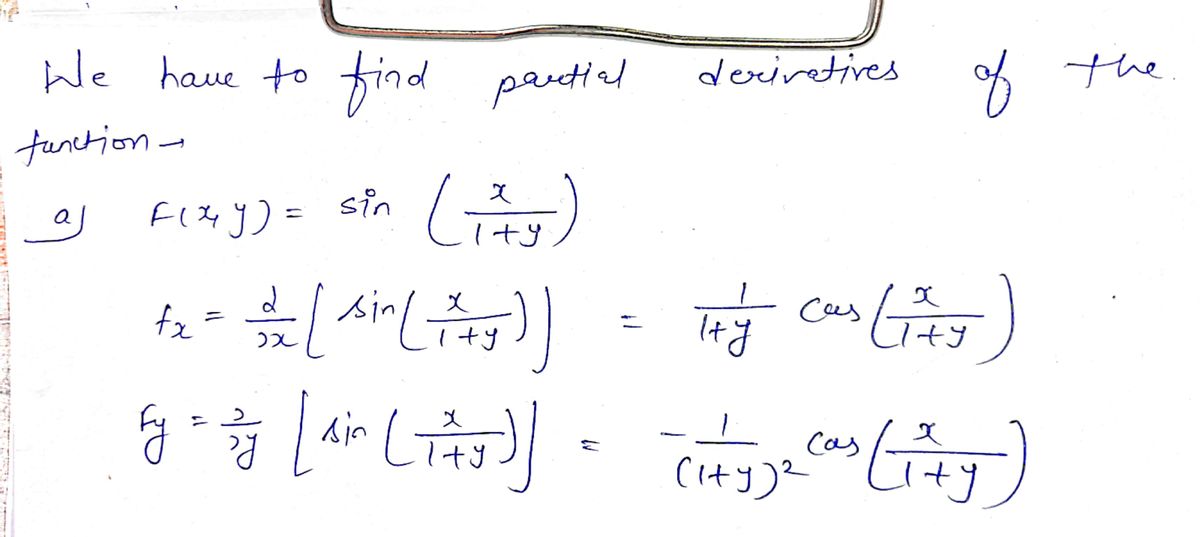 We have to find partial derivatives of the
function →
a) F(x, y) = sin (x/(1+y))
fx = ∂/∂x [sin(x/(1+y))] = 1/(1+y) cos (x/(1+y))
Fy = ∂/∂y [sin (x/(1+y))] = -1/(1+y)² cos (x/(1+y))